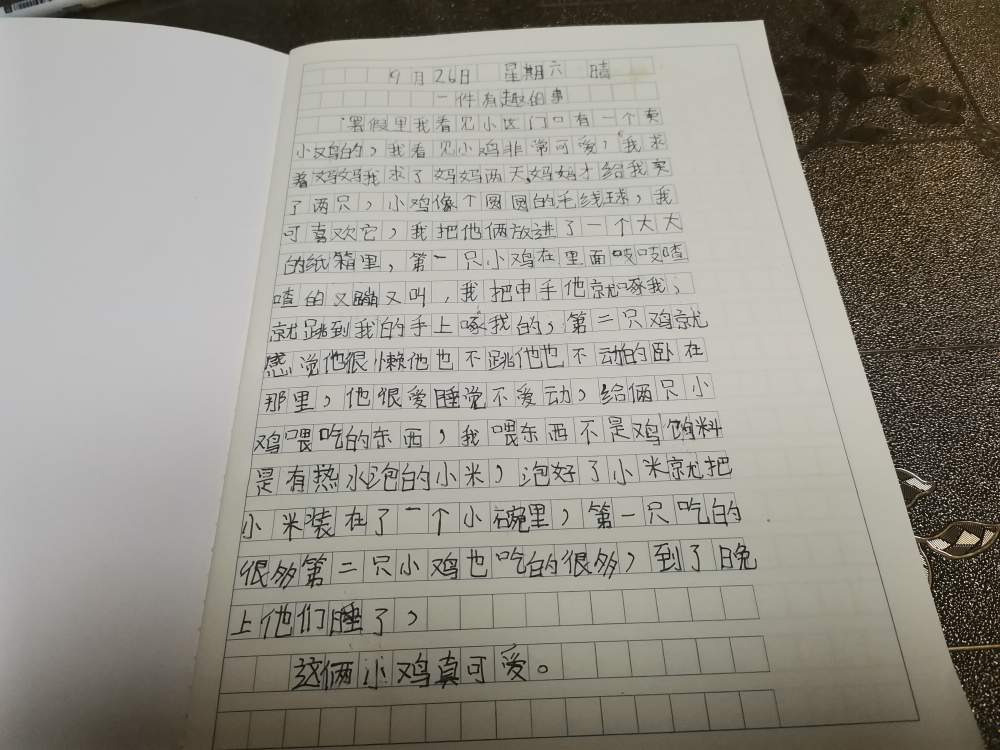 9月26日 星期六 晴
一件有趣的事
暑假里我看见小区门口有一个卖
小鸡的，我看见小鸡非常可爱，我求
着妈妈我求了妈妈两天，妈妈才给我买
了两只，小鸡像个圆圆的毛线球，我
可喜欢它，我把他俩放进了一个大大
的纸箱里，第一只小鸡在里面吱吱喳
喳的又蹦又叫，我把申手他就啄我，
就跳到我的手上啄我的，第二只鸡就
感觉他很懒他也不跳他也不动的卧在
那里，他很爱睡觉不爱动，给俩只小
鸡喂吃的东西，我喂东西不是鸡饲料
是有热水泡的小米，泡好了小米就把
小米装在了一个小碗里，第一只吃的
很多第二只小鸡也吃的很多，到了晚
上他们睡了，
这俩小鸡真可爱。